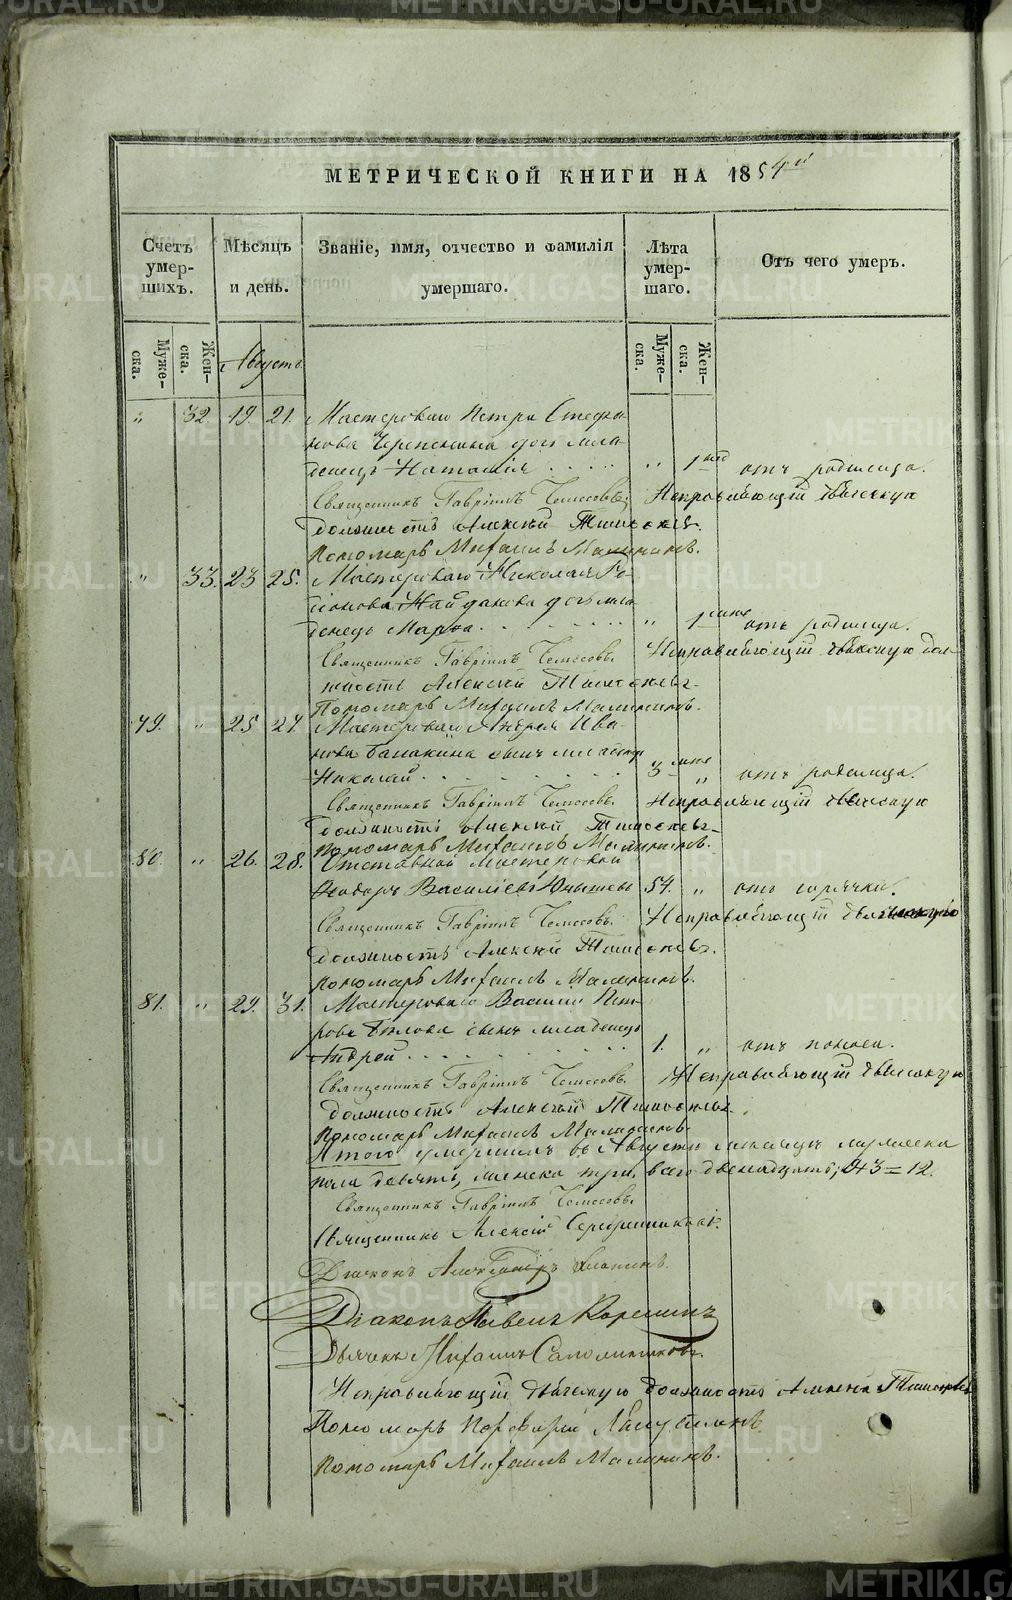 МЕТРИЧЕСКОЙ КНИГИ НА 1854й
Счетъ умер-шихъ.
Мѣсяцъ и день.
Званіе, имя, отчество и фамилія умершаго.
Лѣта умер-шаго.
Отъ чего умеръ.
Муже-ска.
Жен-ска.
Августъ
Муже-ска.
Жен-ска.
" 32. 19. 21. Мастероваго Петра Стефа-
нова дочь мла-
денецъ Наталія " отъ родимца.
Священникъ Гавріилъ Исправляющій дьяческую
должность Алексѣй
Пономарь Михаилъ Малининъ.
" 33. 23 25. Мастероваго Николая Ро-
діонова Найданова дочь мла-
денецъ Марѳа " отъ родимца.
Священникъ Гавріилъ Исправляющій дьяческую дол-
жность Алексѣй
Пономарь Михаилъ Малининъ.
79. " 25 27. Мастероваго Андрея Ива-
нова сынъ младенецъ
Николай 3 " отъ родимца.
Священникъ Гавріилъ Исправляющій дьяческую
должность Алексѣй
Пономарь Михаилъ Малининъ.
80. " 26. 28. Отставной мастеровой
Ѳеодоръ Васильевъ 54. " отъ горячки.
Священникъ Гавріилъ Исправляющій дьяческую
должность Алексѣй
Пономарь Михаилъ Малининъ.
81. " 29. 31. Мастероваго Василія Пет-
рова Бѣлова сынъ младенецъ
Андрей 1. " отъ поноса.
Священникъ Гавріилъ Исправляющій дьяческую
должность Алексѣй
Пономарь Михаилъ Малининъ.
Итого умершихъ въ Августѣ мѣсяцѣ мужеска
пола девять, женска три, всего двенадцать, 9+3=12.
Священникъ Гавріилъ
Священникъ Алексій Серебренниковъ.
Діаконъ Александръ
Діаконъ Павелъ
Дьячекъ Михаилъ
Исправляющій дьяческую должность Алексѣй
Пономарь Порфирій
Пономарь Михаилъ Малининъ.
METRIKI.GASO-URAL.RU